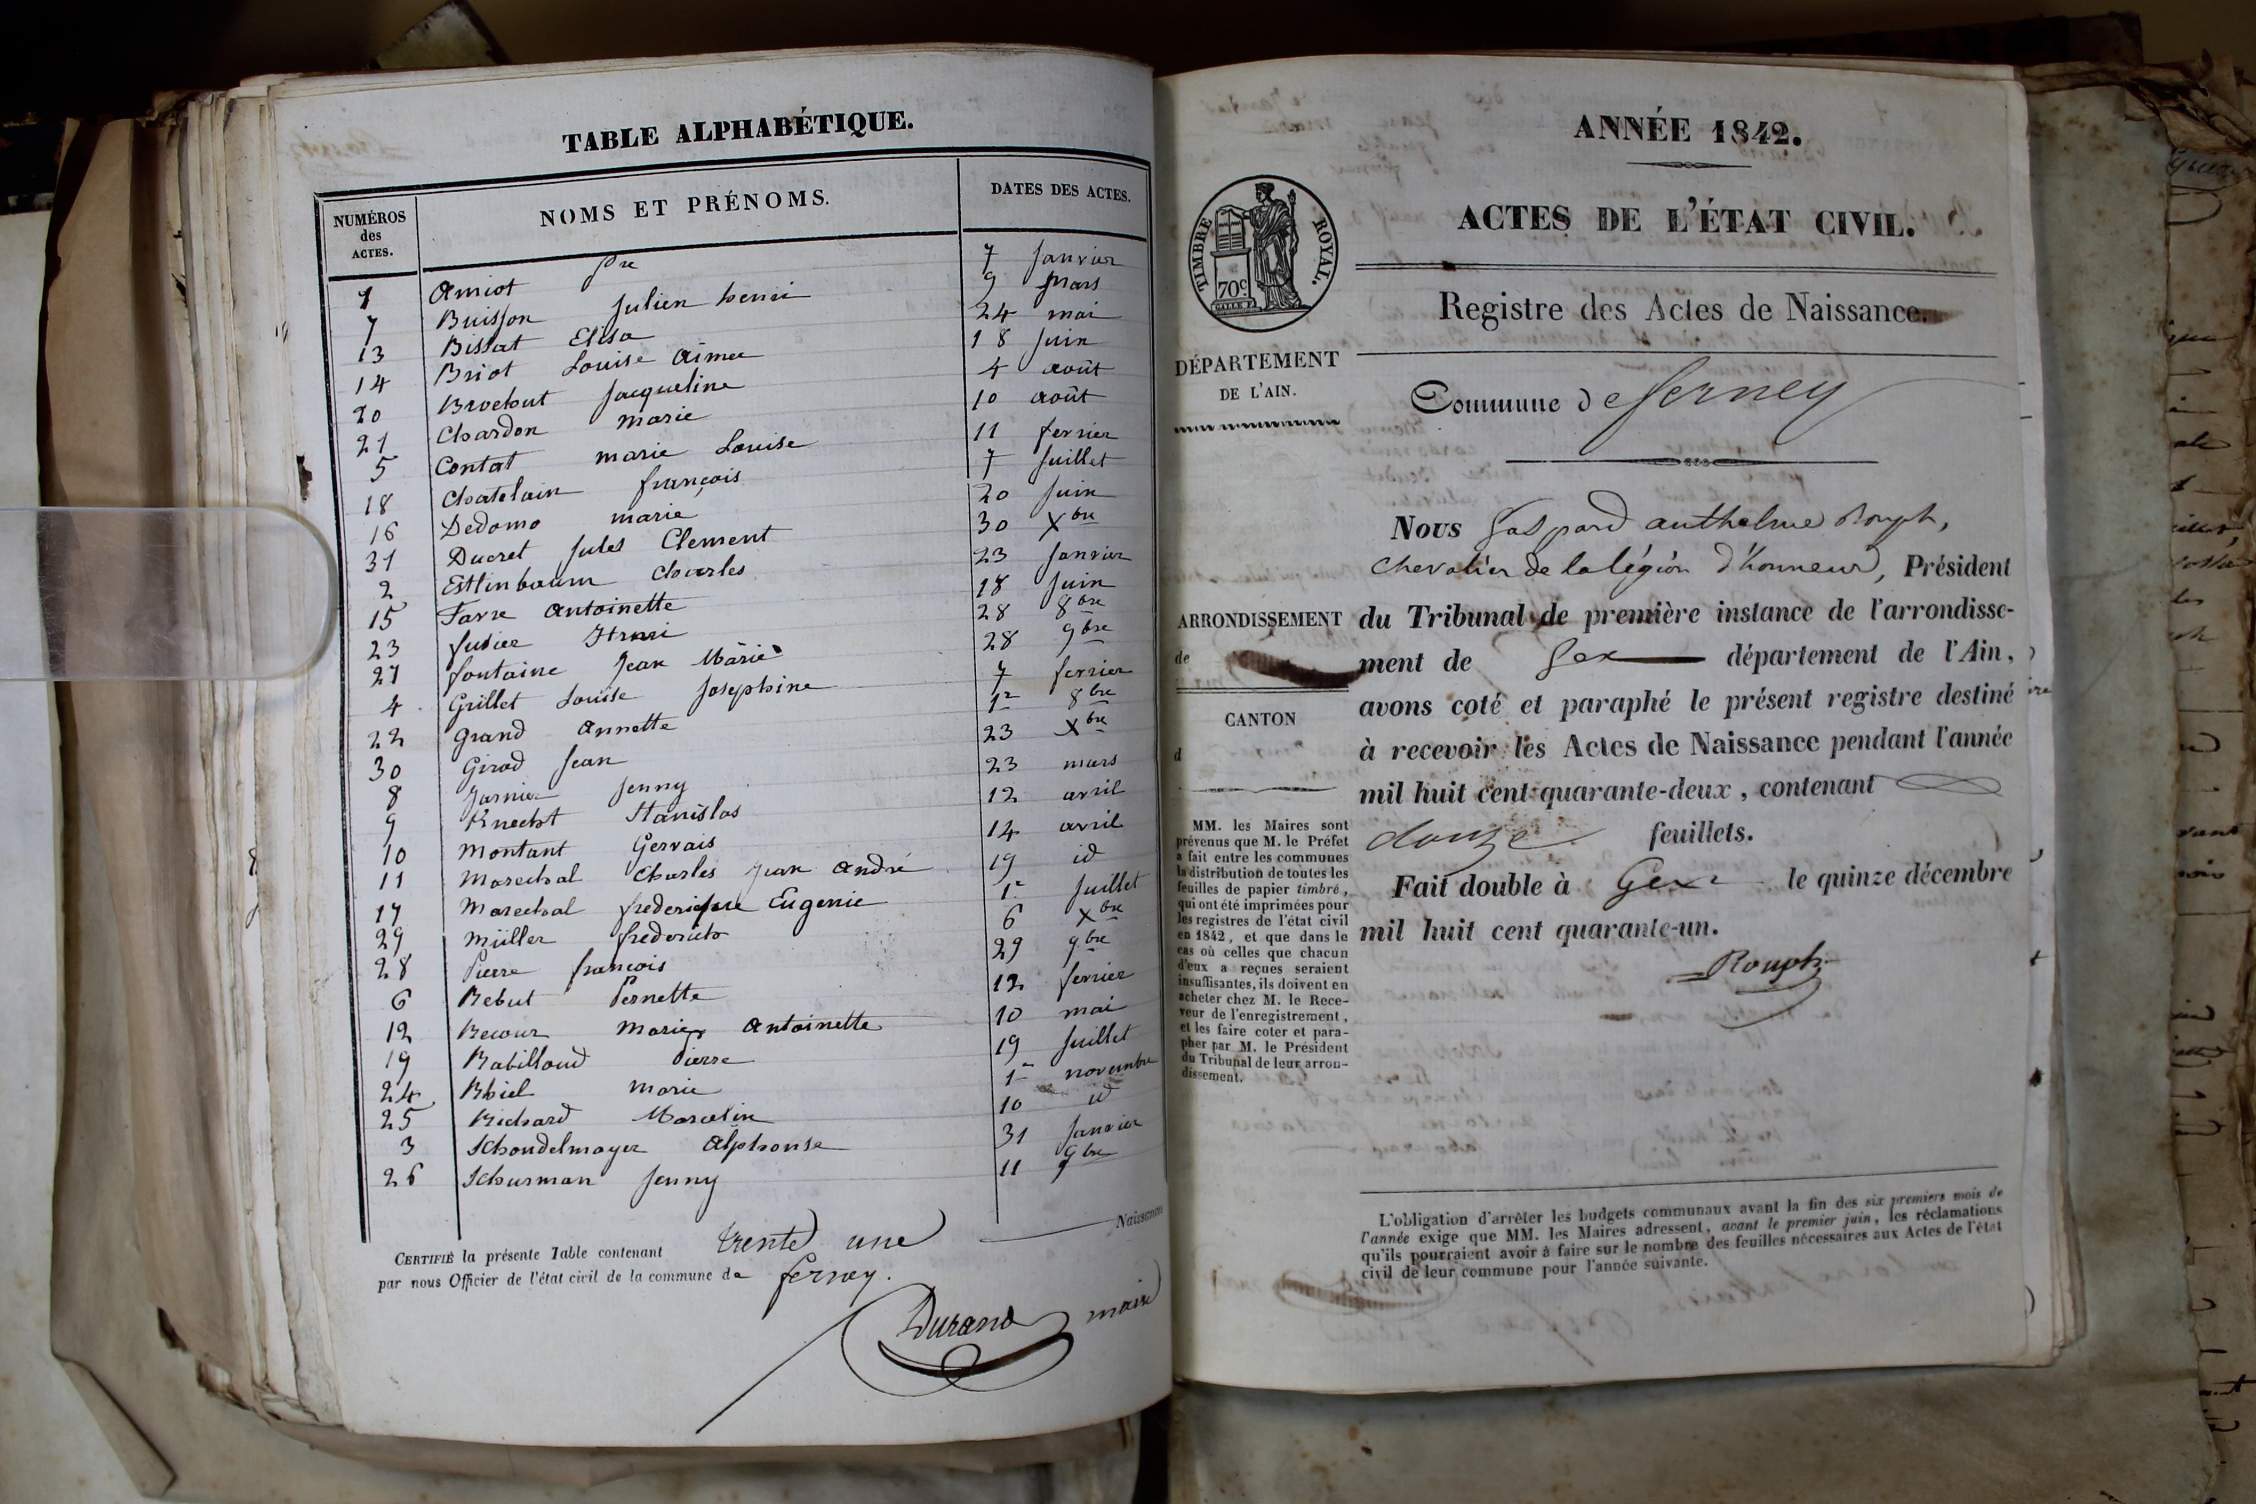 TABLE ALPHABÉTIQUE.
NUMÉROS des ACTES. NOMS ET PRÉNOMS. DATES DES ACTES.
1 Amiot Pre 7 Janvier
7 Buisson Julien henri 9 Mars
13 Bissat Elisa 24 mai
14 Briot Louise Aimee 18 Juin
20 Brochut Jacqueline 4 août
21 Chardon marie 10 août
5 Contat marie Louise 11 fevrier
18 Chatelain françois 7 Juillet
16 Dedomo marie 20 Juin
31 Ducret Jules Clement 30 Xbre
2 Ettinbaum Charles 23 Janvier
15 Favre Antoinette 18 Juin
23 fusier Henri 28 8bre
27 fontaine Jean Marie 28 9bre
4 Grillet Louise Josephine 7 fevrier
22 Grand Annette 1r 8bre
30 Girod Jean 23 Xbre
8 Jarnier Jenny 23 mars
9 Knecht Stanislas 12 avril
10 Montant Gervais 14 avril
11 Marechal Charles Jean André 19 id
17 Marechal frederique Eugenie 1r Juillet
29 Müller frederich 6 Xbre
28 Pierre françois 29 9bre
6 Rebut Pernette 12 fevrier
12 Recour Marie Antoinette 10 mai
19 Rabilloud Pierre 19 Juillet
24 Rhiel marie 1r novembre
25 Richard Marcelin 10 id
3 Schoudelmayer Alphonse 31 Janvier
26 Schurman Jenny 11 9bre
CERTIFIÉ la présente Table contenant trente une Naissances
par nous Officier de l'état civil de la commune de ferney.
Durand maire
ANNÉE 1842.
ACTES DE L'ÉTAT CIVIL.
TIMBRE ROYAL.
70c
Registre des Actes de Naissance.
DÉPARTEMENT
DE L'AIN.
Commune de ferney
Nous Gaspard anthelme Rouph,
chevalier de la légion d'honneur, Président
ARRONDISSEMENT
de
du Tribunal de première instance de l'arrondisse-
ment de Gex département de l'Ain,
avons coté et paraphé le présent registre destiné
CANTON
d
à recevoir les Actes de Naissance pendant l'année
mil huit cent quarante-deux, contenant
douze feuillets.
Fait double à Gex le quinze décembre
mil huit cent quarante-un.
Rouph
MM. les Maires sont
prévenus que M. le Préfet
a fait entre les communes
la distribution de toutes les
feuilles de papier timbré,
qui ont été imprimées pour
les registres de l'état civil
en 1842, et que dans le
cas où celles que chacun
d'eux a reçues seraient
insuffisantes, ils doivent en
acheter chez M. le Rece-
veur de l'enregistrement,
et les faire coter et para-
pher par M. le Président
du Tribunal de leur arron-
dissement.
L'obligation d'arrêter les budgets communaux avant la fin des six premiers mois de
l'année exige que MM. les Maires adressent, avant le premier juin, les réclamations
qu'ils pourraient avoir à faire sur le nombre des feuilles nécessaires aux Actes de l'état
civil de leur commune pour l'année suivante.